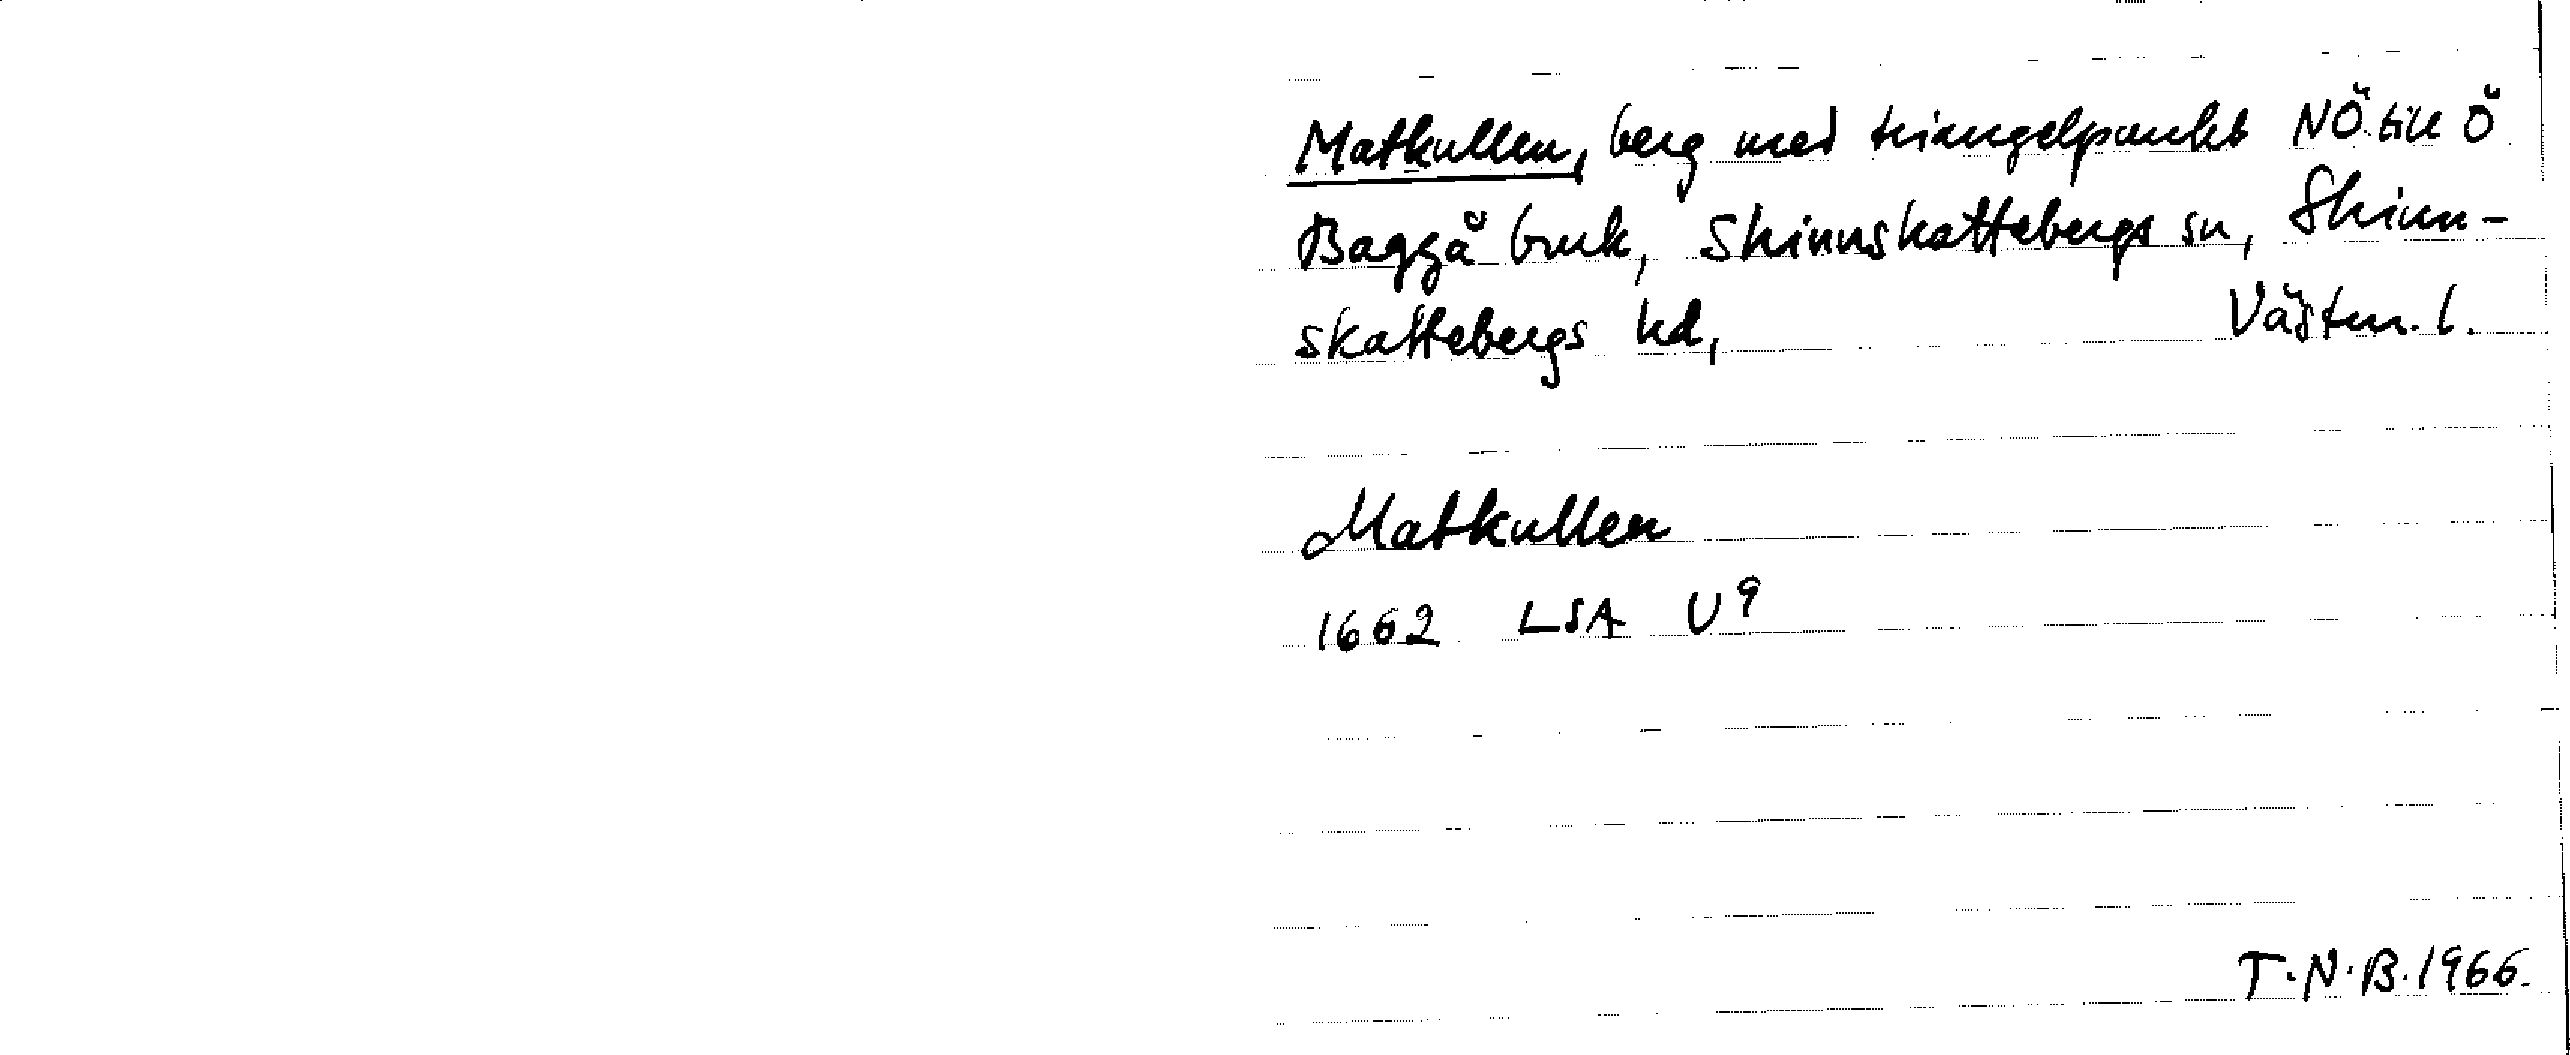 Matkullen, berg med triangelpunkt NÖ till Ö
Baggå bruk, Skinnskattebergs sn, Skinn-
skattebergs hd, Västm. l.
Matkullen
1662 LSA U9
T.N.B. 1966.